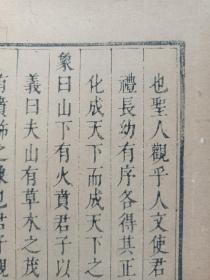 也聖人觀乎人文使君
禮長幼有序各得其正
化成天下而成天下之
象曰山下有火賁君子以
義曰夫山有草木之茂
有賁飾之象也君子觀